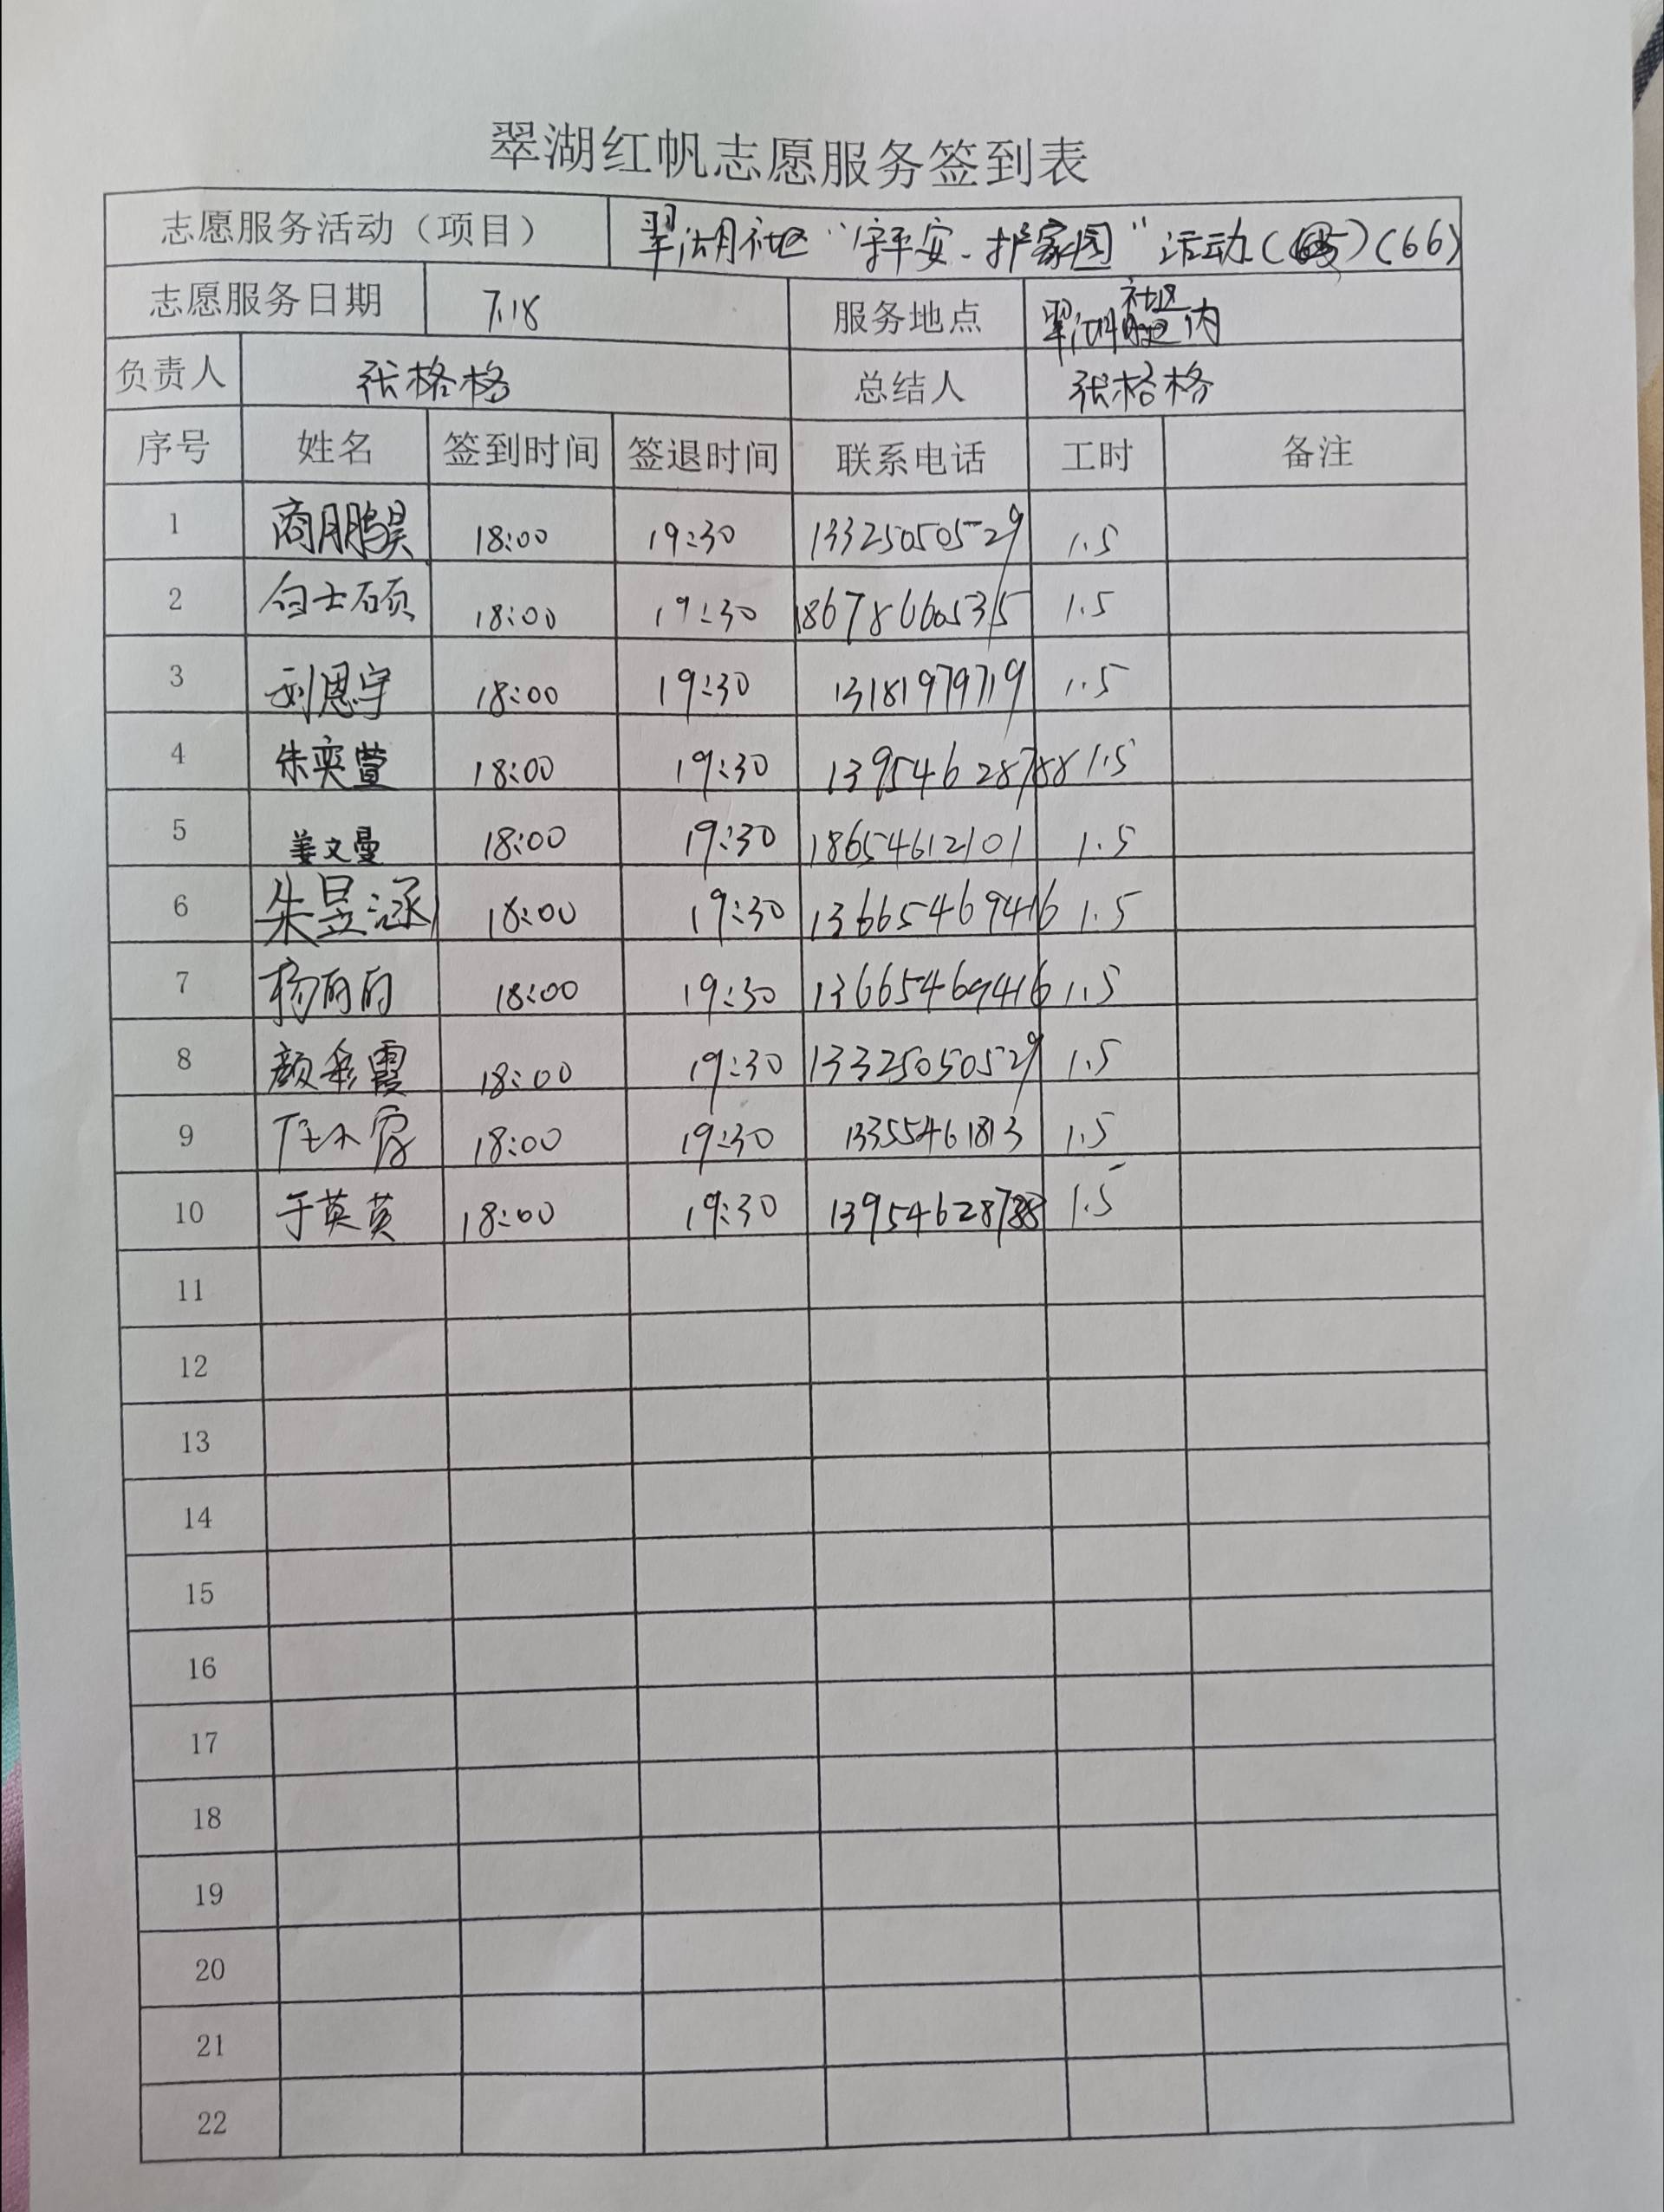 翠湖红帆志愿服务签到表
志愿服务活动（项目） 翠湖社区“守平安、护家园”活动（65）（66）
志愿服务日期 7.18 服务地点 翠湖社区内
负责人 张格格 总结人 张格格
序号 姓名 签到时间 签退时间 联系电话 工时 备注
1 商鹏昊 18:00 19:30 13325050529 1.5
2 白士硕 18:00 19:30 18678660535 1.5
3 刘恩宇 18:00 19:30 13181979719 1.5
4 朱奕萱 18:00 19:30 13954628788 1.5
5 姜文曼 18:00 19:30 18654612101 1.5
6 朱昱涵 18:00 19:30 13665469416 1.5
7 18:00 19:30 13665469416 1.5
8 颜彩霞 18:00 19:30 13325050529 1.5
9 18:00 19:30 13355461813 1.5
10 于英英 18:00 19:30 13954628788 1.5
11
12
13
14
15
16
17
18
19
20
21
22